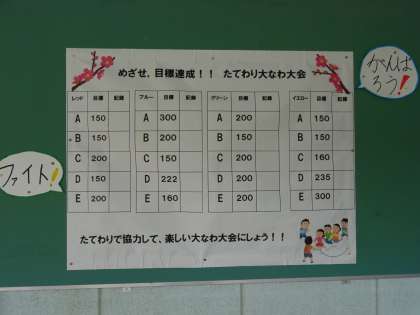 めざせ、目標達成！！　たてわり大なわ大会
がんばろう！
ファイト！
レッド 目標 記録 ブルー 目標 記録 グリーン 目標 記録 イエロー 目標 記録
A 150 A 300 A 200 A 150
B 150 B 200 B 150 B 150
C 200 C 150 C 200 C 160
D 150 D 222 D 200 D 235
E 200 E 160 E 200 E 300
たてわりで協力して、楽しい大なわ大会にしよう！！